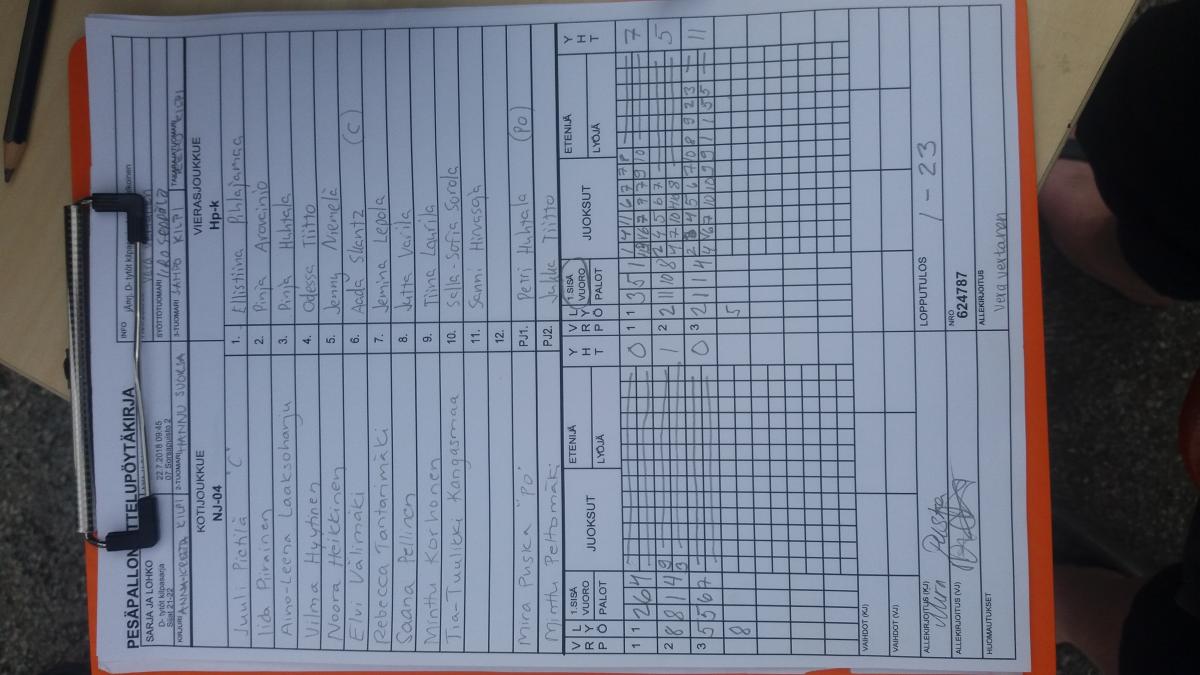 PESÄPALLON OTTELUPÖYTÄKIRJA
SARJA JA LOHKO
D- tytöt kilpasarja
Sijat 21-22
22.7.2018 09:45
07 Sorsapuisto 2
INFO
SYÖTTÖTUOMARI
KIRJURI ANNA-KREETA KILPI
2-TUOMARI HANNU SUOKSA
3-TUOMARI SAMPO KILPI
TAKARAJATUOMARI
KOTIJOUKKUE
NJ-04
VIERASJOUKKUE
Hp-k
Juuli Pietilä "C"
1. Ellistiina Pihlajamaa
Iida Piirainen
2. Pinja Arovainio
Aino-Leena Laaksoharju
3. Pinja Huhtala
Vilma Hyytinen
4. Odessa Tiitto
Noora Heikkinen
5. Jenny Niemelä
Elvi Välimäki
6. Aada Slantz (C)
Rebecca Tantarimäki
7. Jemina Lepola
Saana Pellinen
8. Jutta Varila
Minttu Korhonen
9. Tiina Laurila
Tia-Tuulikki Kangasmaa
10. Salla-Sofia Sorola
11. Sanni Hirvasoja
12.
Mira Puska "PO"
PJ1. Petri Huhtala (PO)
Minttu Peltomäki
PJ2. Jukka Tiitto
V R P
L Y Ö
1.SISÄ VUORO
PALOT
JUOKSUT
ETENIJÄ
LYÖJÄ
Y H T
V R P
L Y Ö
1.SISÄ VUORO
PALOT
JUOKSUT
ETENIJÄ
LYÖJÄ
Y H T
1 1 2 6 4 0
1 1 3 5 1 7
2 8 8 1 4 9 1
2 2 11 10 8 5
3 5 5 6 7 0
3 2 1 1 4 11
8
5
VAIHDOT (KJ)
VAIHDOT (VJ)
ALLEKIRJOITUS (KJ)
LOPPUTULOS 1 - 23
ALLEKIRJOITUS (VJ)
NRO
624787
HUOMAUTUKSET
ALLEKIRJOITUS
Vera Vertanen